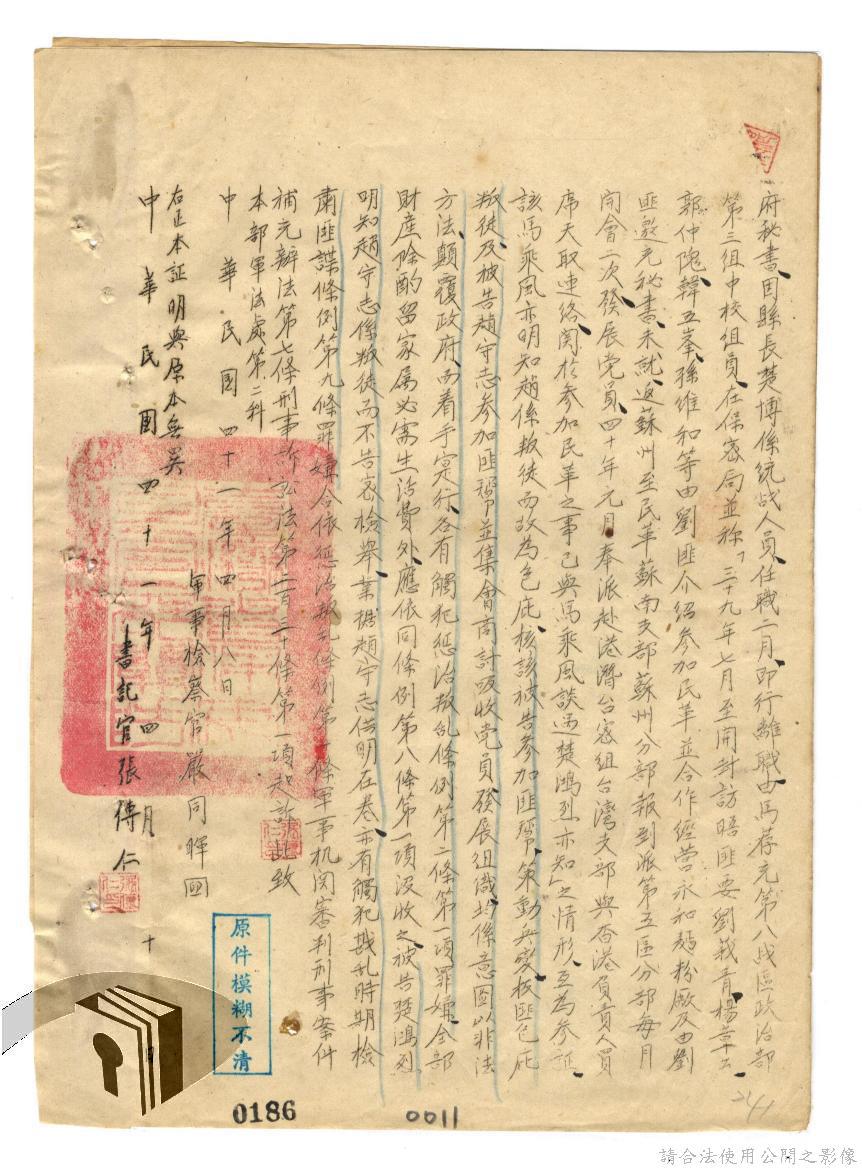 府秘書因縣長楚博係統战人員任職二月即行離職由馬荐充第八战區政治部
第三組中校組員在保密局並称「三十九年七月至開封訪晤匪要劉莪青楊章五
郭仲隗韓五峯孫維和等由劉匪介紹参加民革並合作經营永和麵粉厰及由劉
匪邀充秘書未就返蘇州至民革蘇南支部蘇州分部報到派第五區分部每月
開會二次發展党員四十年元月奉派赴港潛台密組台灣支部與香港負責人員
席天取連絡関於参加民革之事已與馬乘風談过楚鴻烈亦知」之情形互為参証
該馬乘風亦明知趙係叛徒而故為包庇核該被告参加匪帮策動兵变掩匪包庇
叛徒及被告趙守志参加匪帮並集會商討吸收党員發展組織均係意圖以非法
方法顛覆政府而着手实行各有觸犯惩治叛乱条例第二條第一項罪嫌全部
財產除酌留家属必需生活費外應依同條例第八條第一項没收之被告楚鴻烈
明知趙守志係叛徒而不告密檢舉業据趙守志供明在卷亦有觸犯戡乱時期檢
肅匪諜條例第九條罪嫌合依惩治叛乱條例第十條軍事机関審判刑事案件
補充辦法第七條刑事訴訟法第二百三十條第一項起訴此致
本部軍法處第二科
中華民國四十一年四月八日
軍事檢察官嚴同暉
右正本証明與原本無異
書記官張傅仁
中華民國四十一年四月十日
原件模糊不清
0186
0011
241
請合法使用公開之影像